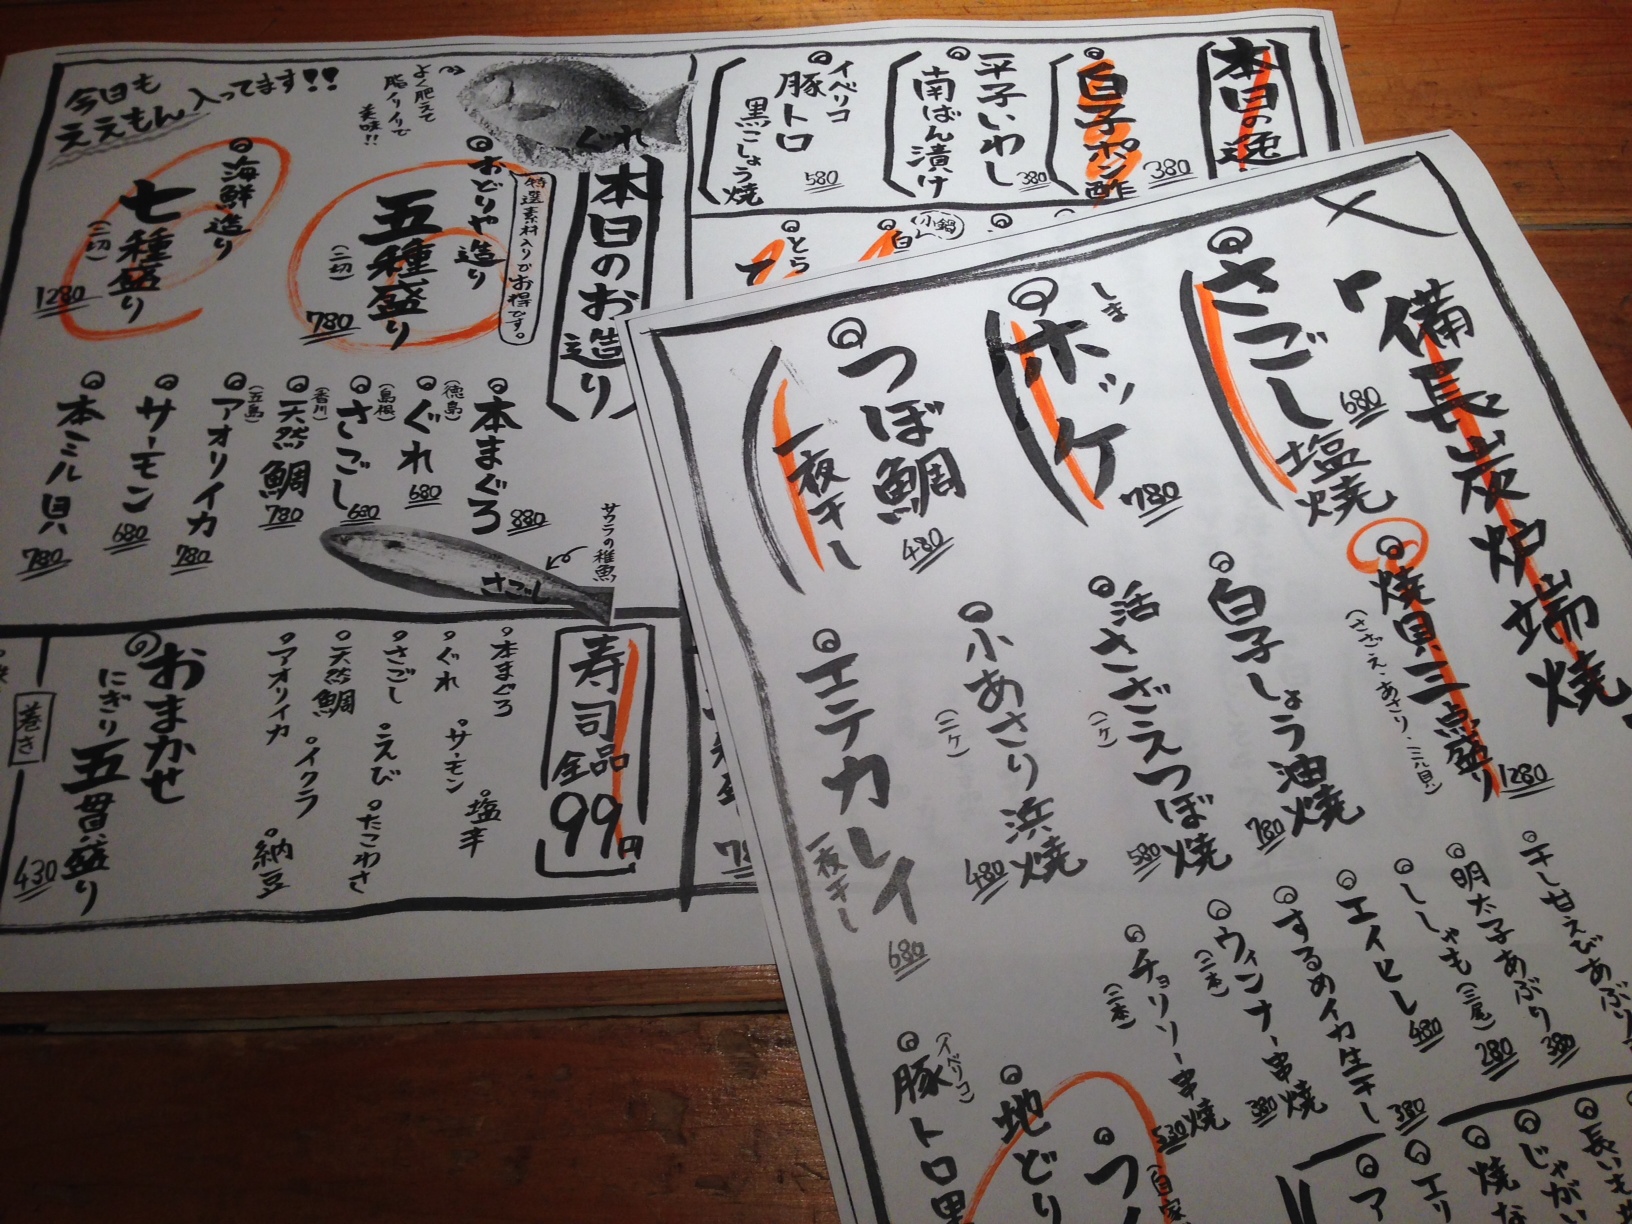 今日も
ええもん入ってます!!
よく肥えて
脂ノリノリで
美味!!
ぐれ
本日のお造り
特選素材入りでお得です。
おどりや造り
五種盛り
(二切)
780
海鮮造り
七種盛り
(二切)
1280
本まぐろ
880
(徳島)
ぐれ
680
(島根)
さごし
680
(香川)
天然鯛
780
(五島)
アオリイカ
780
サーモン
680
本ミル貝
780
サワラの稚魚
さごし
寿司
全品
99円
本まぐろ
サーモン
塩辛
ぐれ
さごし
えび
たこわさ
天然鯛
イクラ
アオリイカ
納豆
おまかせ
にぎり
五貫盛り
430
巻き
本日の逸
白子ポン酢
380
平子いわし
南ばん漬け
380
イベリコ
豚トロ
黒こしょう焼
580
小鍋
白
とら
備長炭炉端焼
さごし
塩焼
680
しま
ホッケ
780
つぼ鯛
一夜干し
480
焼貝三点盛り
(さざえ・あさり・ミル貝)
1280
白子しょう油焼
780
活さざえつぼ焼
(一ケ)
580
小あさり浜焼
(二ケ)
480
エテカレイ
一夜干し
680
干し甘えびあぶり
明太子あぶり
380
ししゃも(三尾)
280
エイヒレ
480
するめイカ生干し
380
ウィンナー串焼
(二本)
380
チョリソー串焼
(二本)
530
(イベリコ)
豚トロ黒
地どり
つ
(自家
長いも
じゃがい
焼な
エリ
ア